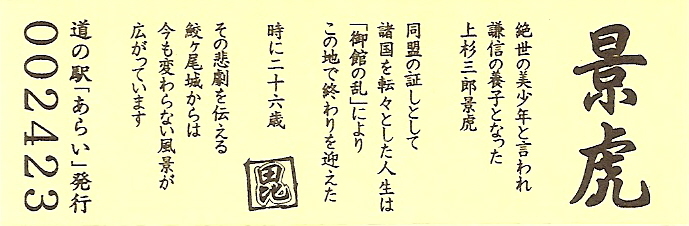 景虎
絶世の美少年と言われ
謙信の養子となった
上杉三郎景虎
同盟の証しとして
諸国を転々とした人生は
「御館の乱」により
この地で終わりを迎えた
時に二十六歳
毘
その悲劇を伝える
鮫ヶ尾城からは
今も変わらない風景が
広がっています
道の駅「あらい」発行
002423